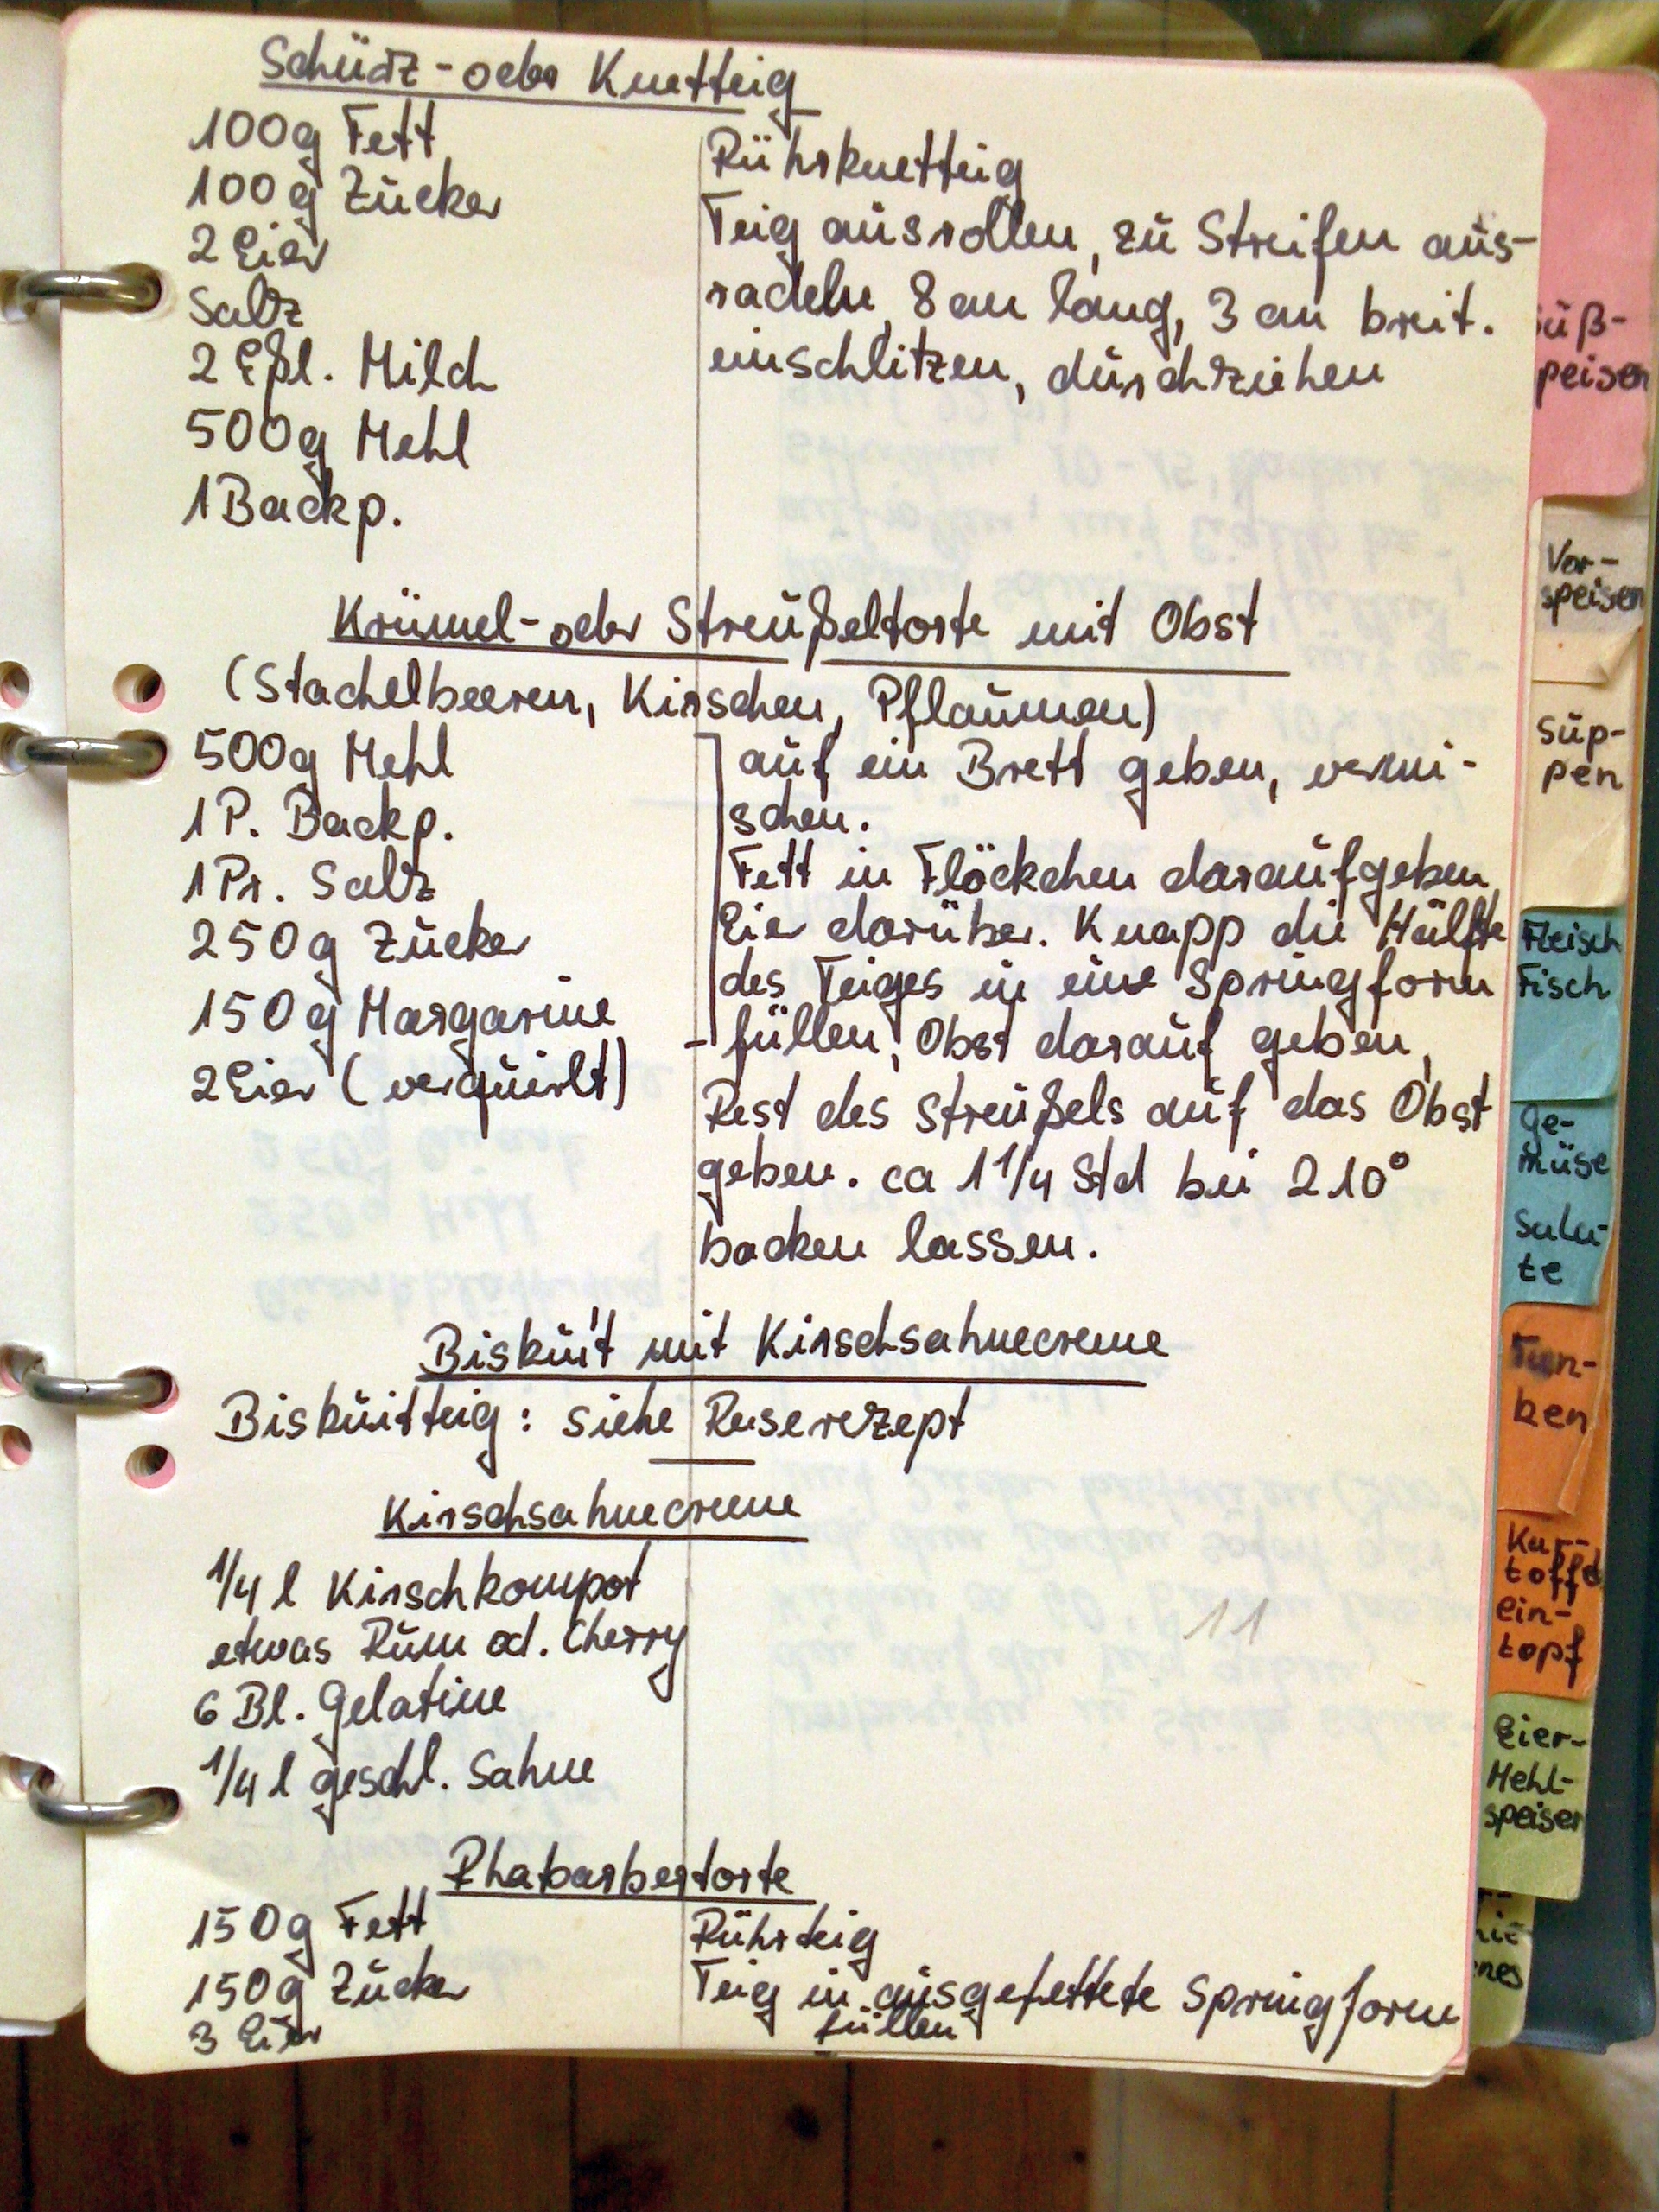 Schürz- oder Knetteig
100g Fett
100g Zucker
2 Eier
Salz
2 Eßl. Milch
500g Mehl
1 Backp.
Rührknetteig
Teig ausrollen, zu Streifen aus-
radeln, 8 cm lang, 3 cm breit.
einschlitzen, durchziehen
Krümel- oder Streußeltorte mit Obst
(Stachelbeeren, Kirschen, Pflaumen)
500g Mehl
1 P. Backp.
1 Pr. Salz
250g Zucker
150g Margarine
2 Eier (verquirlt)
auf ein Brett geben, vermi-
schen.
Fett in Flöckchen daraufgeben,
Eier darüber. Knapp die Hälfte
des Teiges in eine Springform
füllen, Obst darauf geben,
Rest des Streußels auf das Obst
geben. ca 1 1/4 Std bei 210°
backen lassen.
Biskuit mit Kirschsahnecreme
Biskuitteig: siehe
Kirschsahnecreme
1/4 l Kirschkompot
etwas Rum od. Cherry
6 Bl. Gelatine
1/4 l geschl. Sahne
11
Rhabarbertorte
150g Fett
150g Zucker
3 Eier
Rührteig
Teig in ausgefettete Springform
füllen
üß-
peisen
Vor-
speisen
Sup-
pen
Fleisch
Fisch
Ge-
müse
Sala-
te
Tun-
ken
Kar-
toffel
ein-
topf
Eier-
Mehl-
speisen